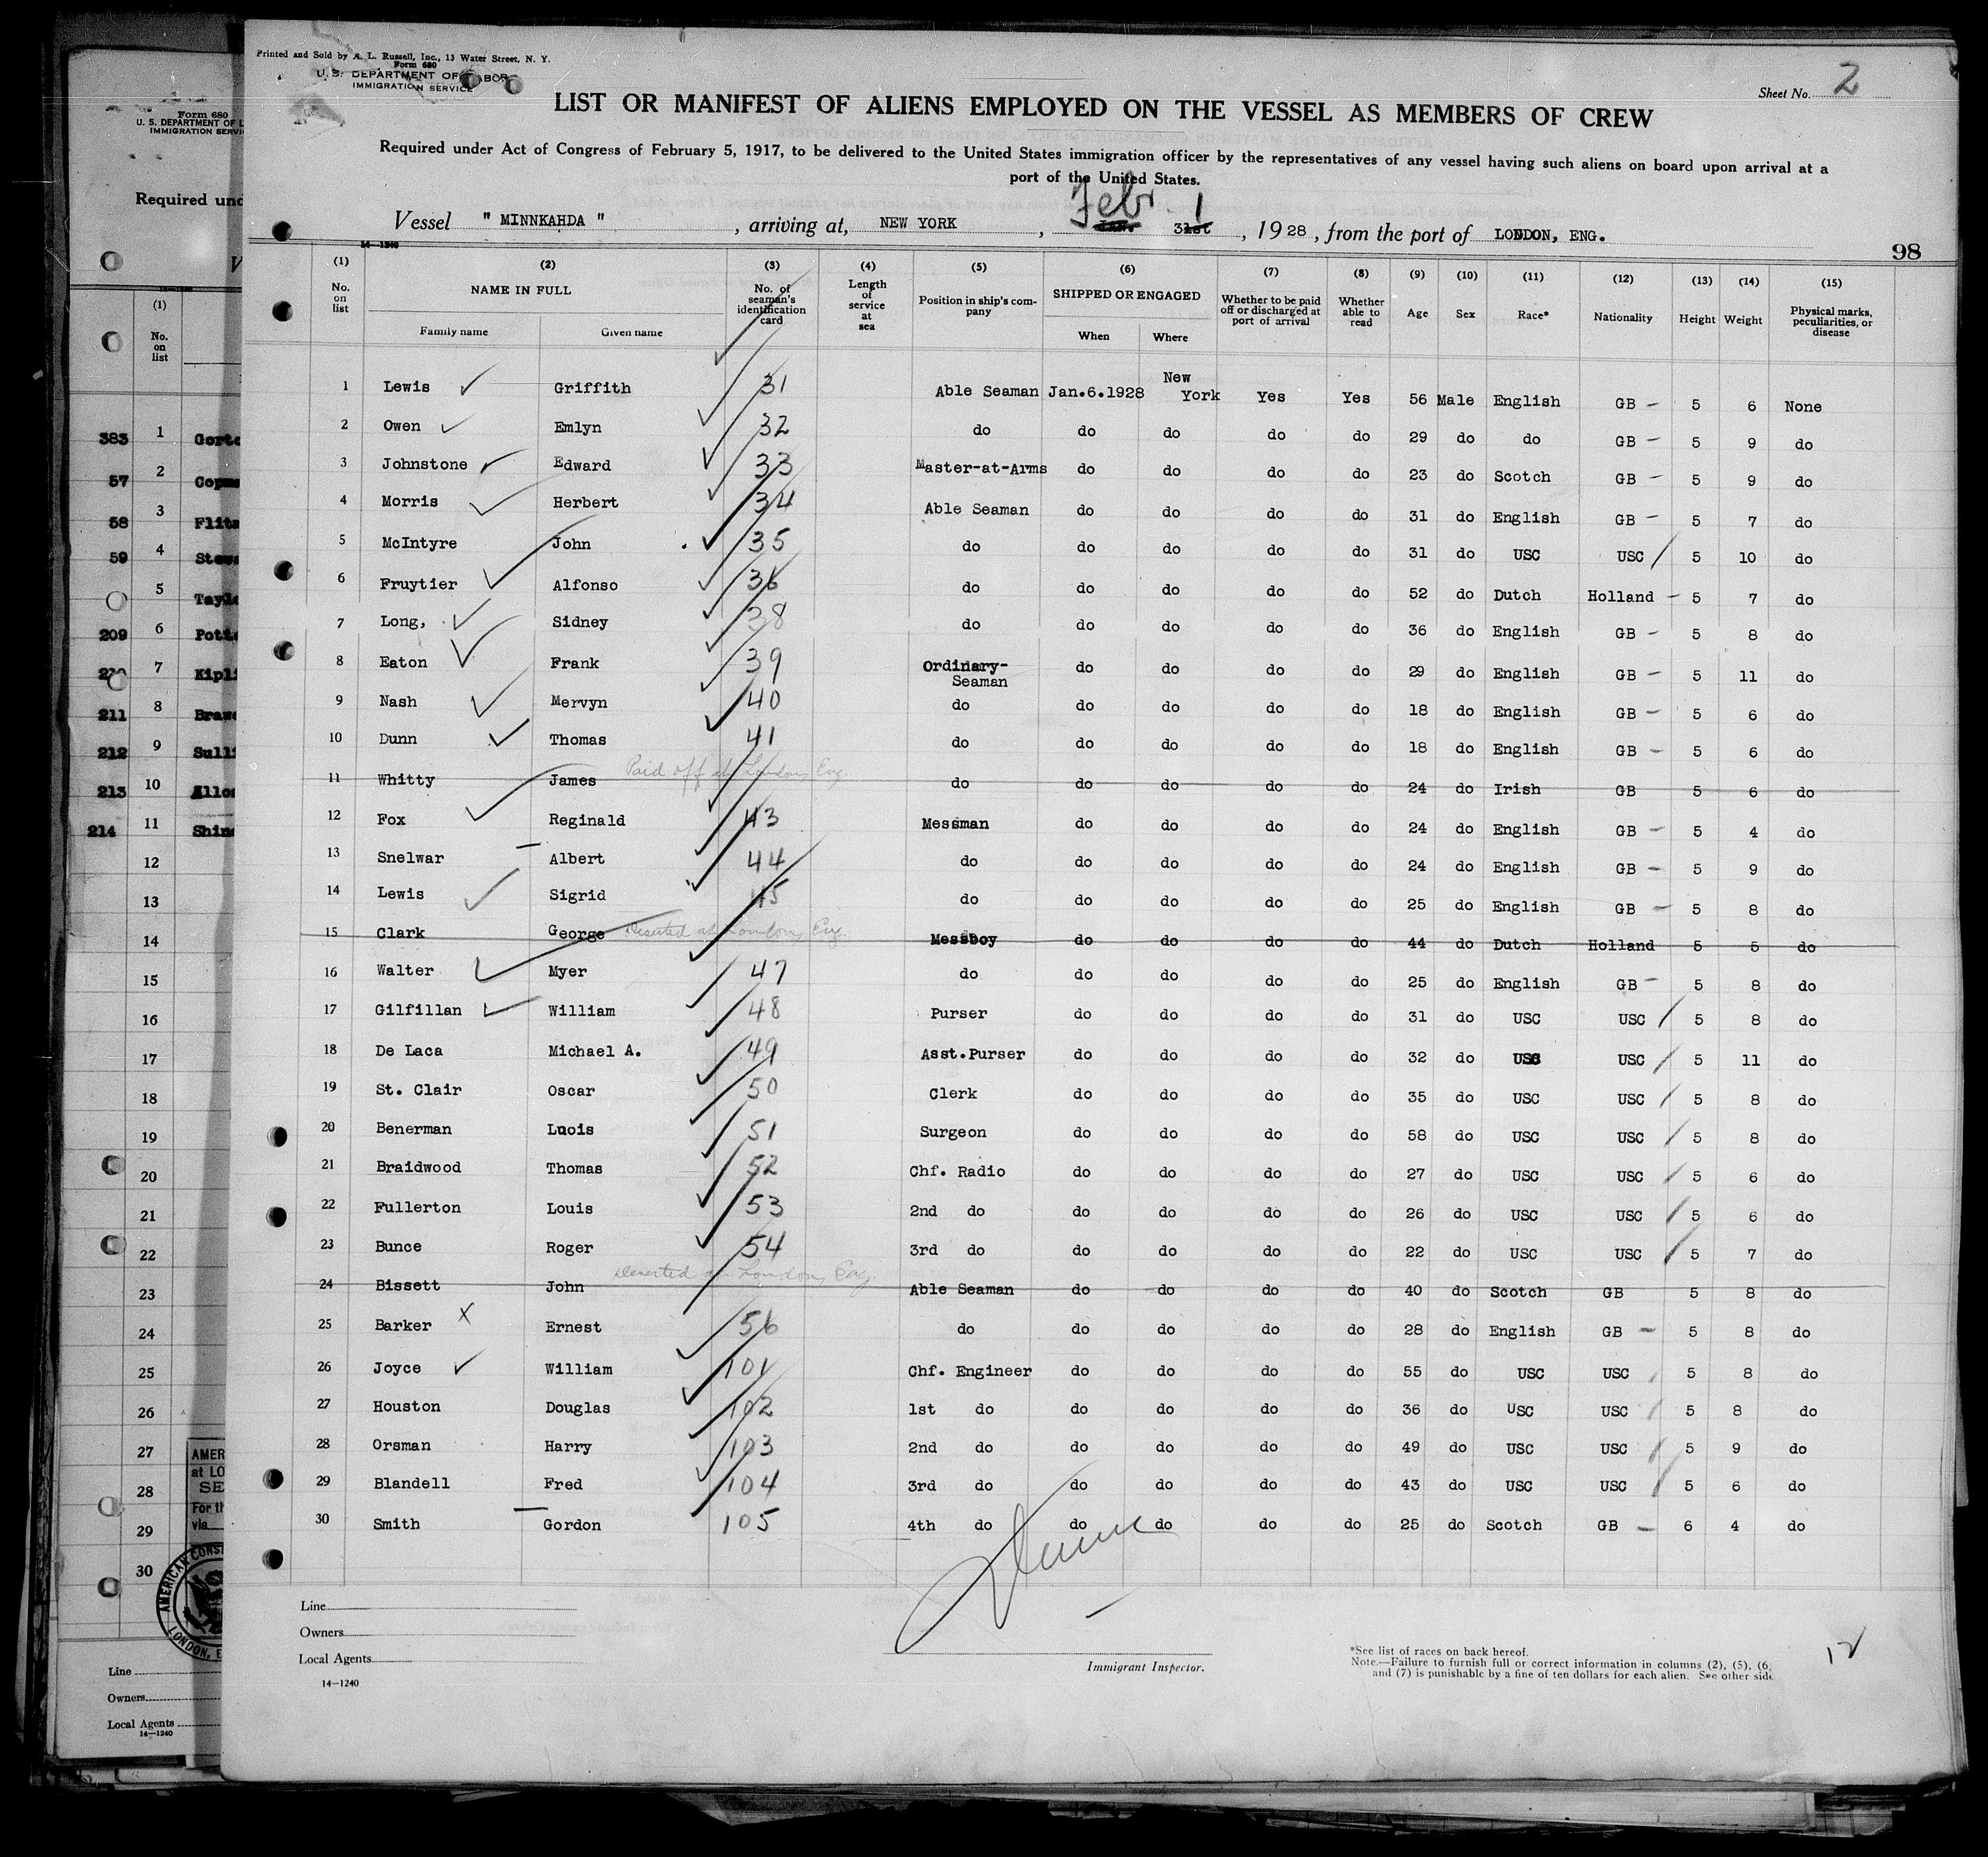 Printed and Sold by A. L. Russell, Inc., 13 Water Street, N. Y.
Form 680
U. S. DEPARTMENT OF LABOR
IMMIGRATION SERVICE
Sheet No. 2
LIST OR MANIFEST OF ALIENS EMPLOYED ON THE VESSEL AS MEMBERS OF CREW
Required under Act of Congress of February 5, 1917, to be delivered to the United States immigration officer by the representatives of any vessel having such aliens on board upon arrival at a
port of the United States.
Vessel " MINNKAHDA ", arriving at, NEW YORK, Feb. 1 Jan. 31st, 1928, from the port of LONDON, ENG.
14-1240
98
(1) (2) (3) (4) (5) (6) (7) (8) (9) (10) (11) (12) (13) (14) (15)
No. on list NAME IN FULL Family name Given name No. of seaman's identification card Length of service at sea Position in ship's company SHIPPED OR ENGAGED When Where Whether to be paid off or discharged at port of arrival Whether able to read Age Sex Race* Nationality Height Weight Physical marks, peculiarities, or disease
1 Lewis Griffith 31 Able Seaman Jan.6.1928 New York Yes Yes 56 Male English GB 5 6 None
2 Owen Emlyn 32 do do do do do 29 do do GB 5 9 do
3 Johnstone Edward 33 Master-at-Arms do do do do 23 do Scotch GB 5 9 do
4 Morris Herbert 34 Able Seaman do do do do 31 do English GB 5 7 do
5 McIntyre John 35 do do do do do 31 do USC USC 5 10 do
6 Fruytier Alfonso 36 do do do do do 52 do Dutch Holland 5 7 do
7 Long, Sidney 38 do do do do do 36 do English GB 5 8 do
8 Eaton Frank 39 Ordinary-Seaman do do do do 29 do English GB 5 11 do
9 Nash Mervyn 40 do do do do do 18 do English GB 5 6 do
10 Dunn Thomas 41 do do do do do 18 do English GB 5 6 do
Paid off at London, Eng.
11 Whitty James do do do do do 24 do Irish GB 5 6 do
12 Fox Reginald 43 Messman do do do do 24 do English GB 5 4 do
13 Snelwar Albert 44 do do do do do 24 do English GB 5 9 do
14 Lewis Sigrid 45 do do do do do 25 do English GB 5 8 do
15 Clark George Deserted at London, Eng. Messboy do do do do 44 do Dutch Holland 5 5 do
16 Walter Myer 47 do do do do do 25 do English GB 5 8 do
17 Gilfillan William 48 Purser do do do do 31 do USC USC 5 8 do
18 De Laca Michael A. 49 Asst.Purser do do do do 32 do USC USC 5 11 do
19 St. Clair Oscar 50 Clerk do do do do 35 do USC USC 5 8 do
20 Benerman Luois 51 Surgeon do do do do 58 do USC USC 5 8 do
21 Braidwood Thomas 52 Chf. Radio do do do do 27 do USC USC 5 6 do
22 Fullerton Louis 53 2nd do do do do do 26 do USC USC 5 6 do
23 Bunce Roger 54 3rd do do do do do 22 do USC USC 5 7 do
Deserted at London, Eng.
24 Bissett John Able Seaman do do do do 40 do Scotch GB 5 8 do
25 Barker X Ernest 56 do do do do do 28 do English GB 5 8 do
26 Joyce William 101 Chf. Engineer do do do do 55 do USC USC 5 8 do
27 Houston Douglas 102 1st do do do do do 36 do USC USC 5 8 do
28 Orsman Harry 103 2nd do do do do do 49 do USC USC 5 9 do
29 Blandell Fred 104 3rd do do do do do 43 do USC USC 5 6 do
30 Smith Gordon 105 4th do do do do do 25 do Scotch GB 6 4 do
Line
Owners
Local Agents
14-1240
Immigrant Inspector.
*See list of races on back hereof.
Note.—Failure to furnish full or correct information in columns (2), (5), (6)
and (7) is punishable by a fine of ten dollars for each alien. See other side
12
Form 680
U. S. DEPARTMENT OF L
IMMIGRATION SERVI
Required und
V
(1)
No. on list
383 1 Gorto
57 2 Copm
58 3 Flits
59 4 Stew
5 Taylo
209 6 Potte
7 Kipli
211 8 Braw
212 9 Sulli
213 10 Allos
214 11 Shinc
12
13
14
15
16
17
18
19
20
21
22
23
24
25
26
27
28
29
30
AMER
at LO
SE
For th
via
AMERICAN CONS
LONDON, E
Line
Owners
Local Agents
14-1240